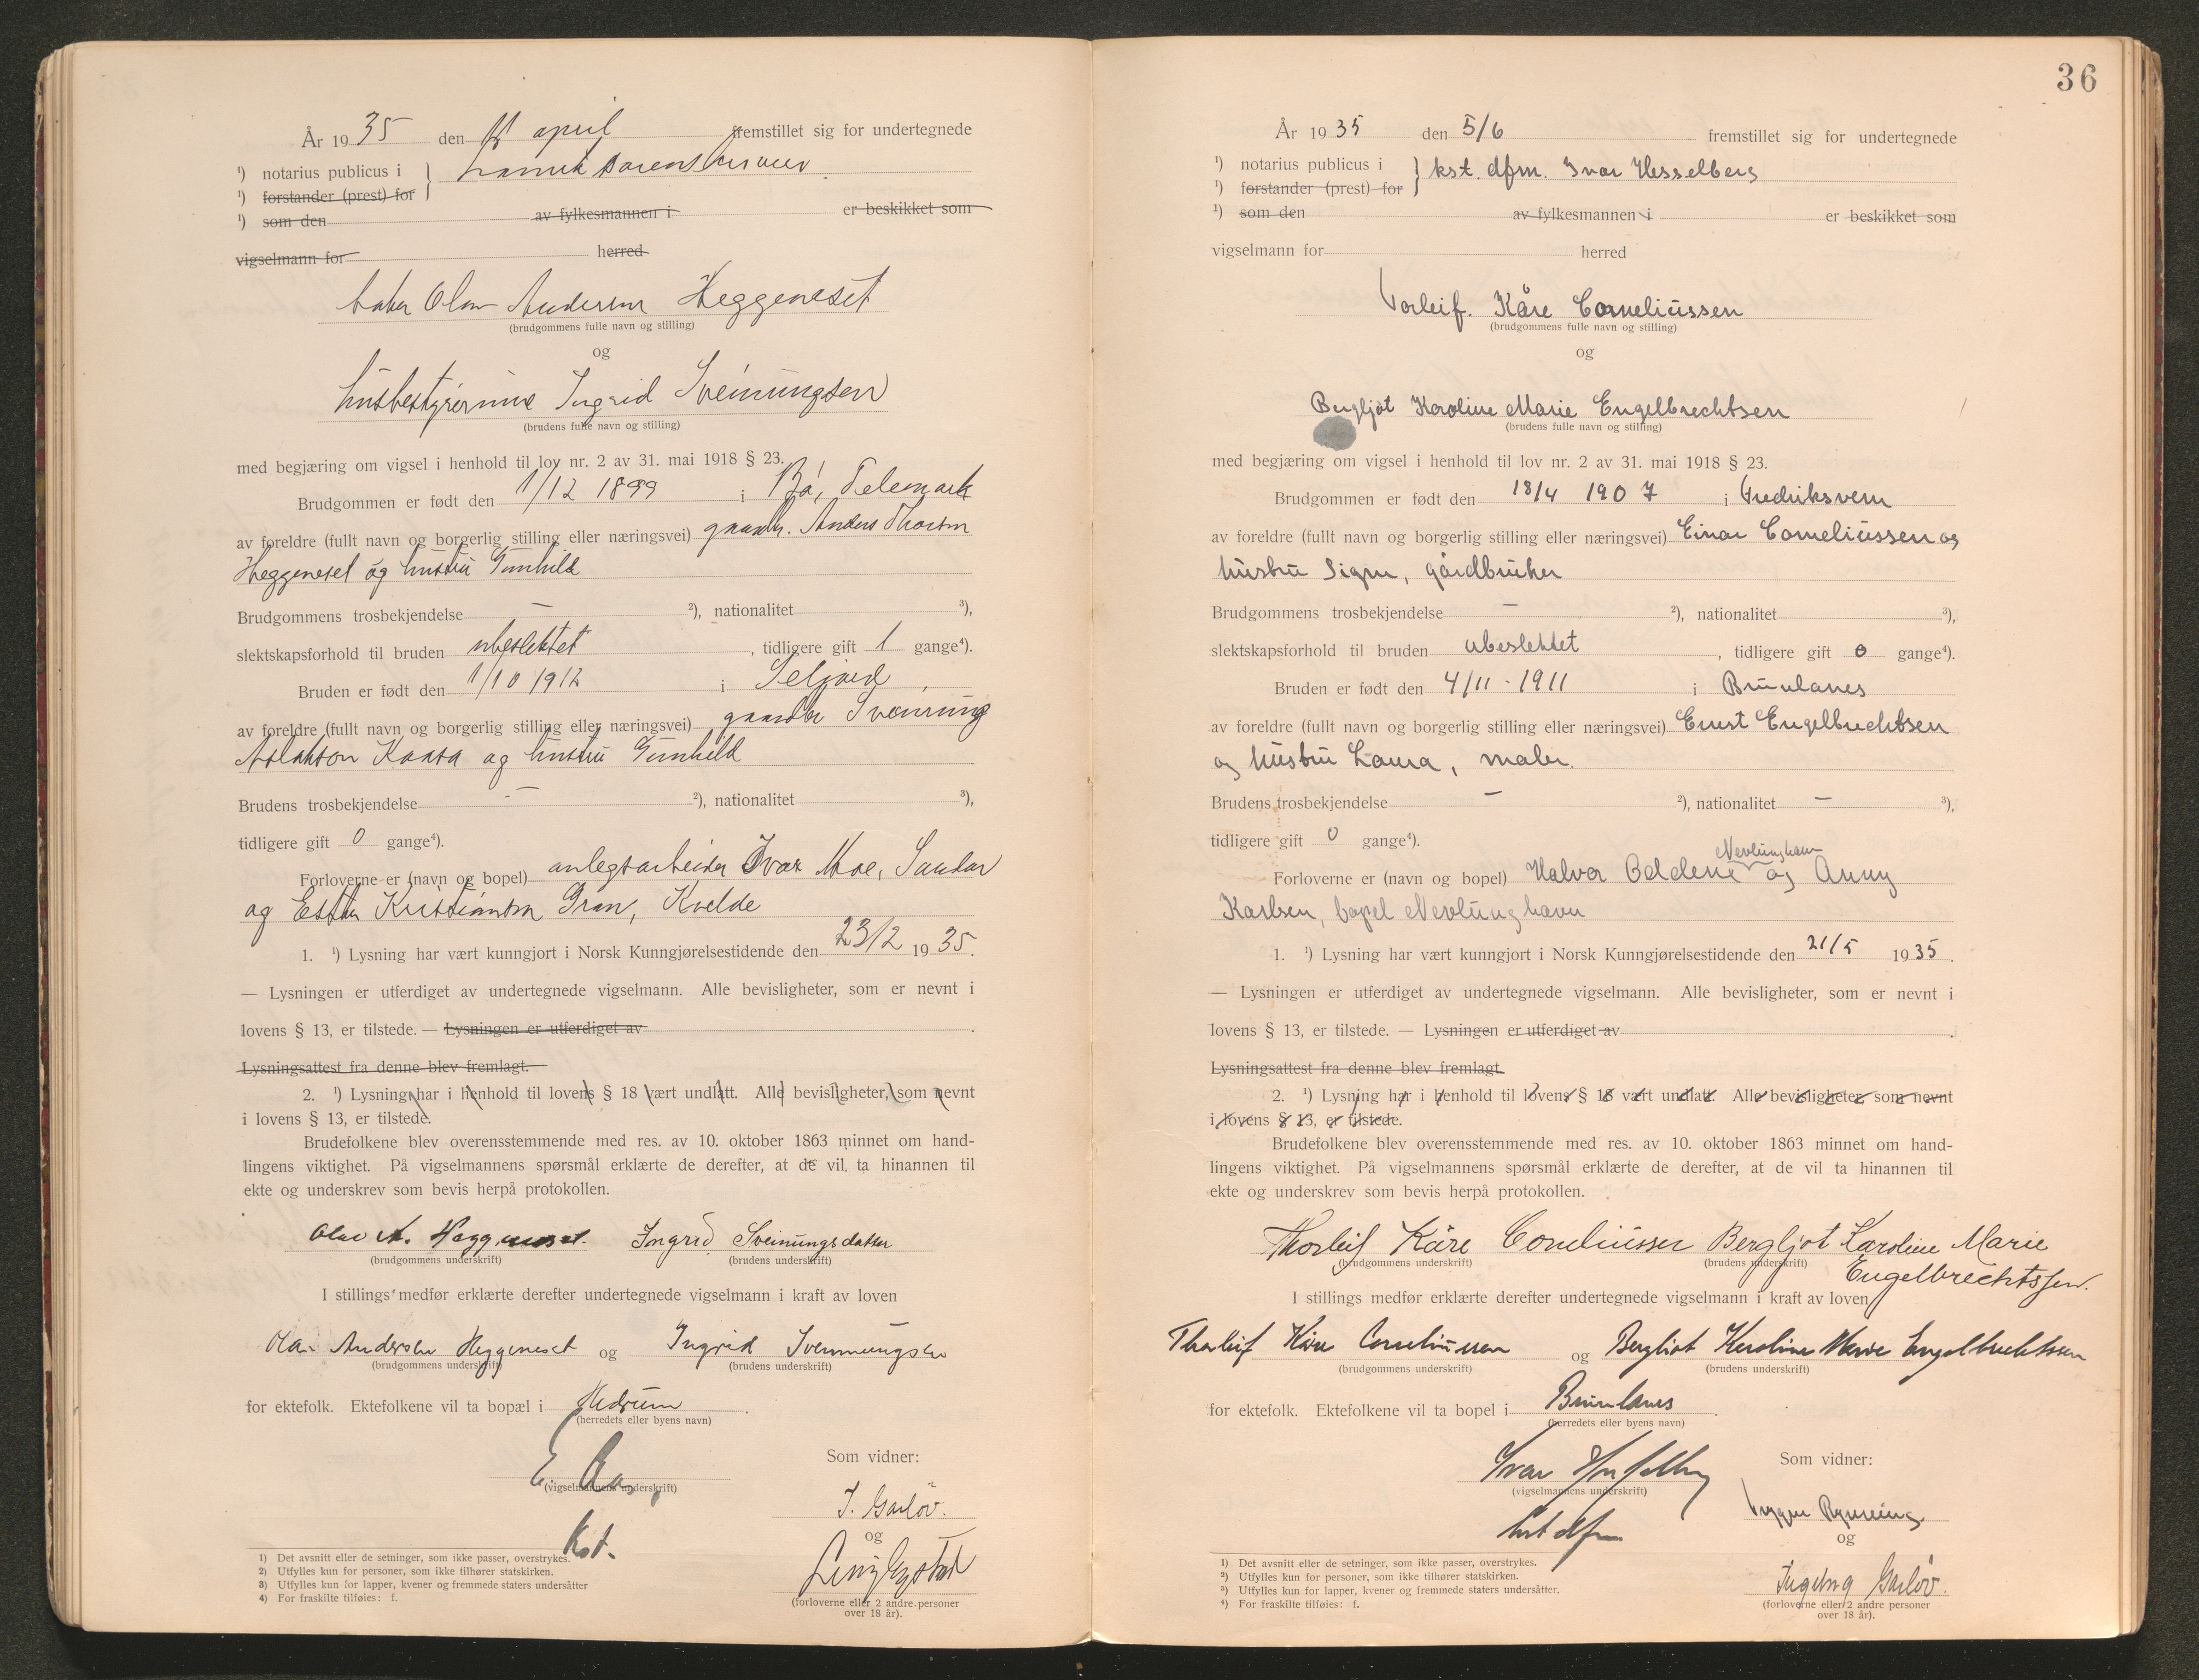 År 1935 den april fremstillet sig for undertegnede
¹) notarius publicus i
¹) forstander (prest) for
¹) som den av fylkesmannen i er beskikket som
vigselmann for herred
Olav Andersen Heggeneset
(brudgommens fulle navn og stilling)
og
husbestyrerinne Ingrid Sveinungsen
(brudens fulle navn og stilling)
med begjæring om vigsel i henhold til lov nr. 2 av 31. mai 1918 § 23.
Brudgommen er født den 1/12 1899 i Bø, Telemark
av foreldre (fullt navn og borgerlig stilling eller næringsvei) gaardbr. Anders Thorsen
Heggeneset og hustru Gunhild
Brudgommens trosbekjendelse — ²), nationalitet ³),
slektskapsforhold til bruden ubeslektet, tidligere gift 1 gange⁴).
Bruden er født den 1/10 1912 i Seljord,
av foreldre (fullt navn og borgerlig stilling eller næringsvei) gaardbr Sveinung
Aslakson Kaasa og hustru Gunhild
Brudens trosbekjendelse — ²), nationalitet ³),
tidligere gift 0 gange⁴).
Forloverne er (navn og bopel) anlegsarbeider Ivar Moe, Sandar
og Esther Kristiansen Gran, Kvelde
1. ¹) Lysning har vært kunngjort i Norsk Kunngjørelsestidende den 23/2 1935.
— Lysningen er utferdiget av undertegnede vigselmann. Alle bevisligheter, som er nevnt i
lovens § 13, er tilstede. — Lysningen er utferdiget av
Lysningsattest fra denne blev fremlagt.
2. ¹) Lysning har i henhold til lovens § 18 vært undlatt. Alle bevisligheter, som nevnt
i lovens § 13, er tilstede.
Brudefolkene blev overensstemmende med res. av 10. oktober 1863 minnet om hand-
lingens viktighet. På vigselmannens spørsmål erklærte de derefter, at de vil ta hinannen til
ekte og underskrev som bevis herpå protokollen.
Olav A. Heggeneset. Ingrid Sveinungsdatter
(brudgommens underskrift) (brudens underskrift)
I stillings medfør erklærte derefter undertegnede vigselmann i kraft av loven
Olav Andersen Heggeneset og Ingrid Sveinungsen
(brudgommens underskrift) (brudens underskrift)
for ektefolk. Ektefolkene vil ta bopæl i Hedrum.
(herredets eller byens navn)
Som vidner:
(vigselmannens underskrift)
J. Garløv.
og
Kst.
(forloverne eller 2 andre personer
over 18 år).
1) Det avsnitt eller de setninger, som ikke passer, overstrykes.
2) Utfylles kun for personer, som ikke tilhører statskirken.
3) Utfylles kun for lapper, kvener og fremmede staters undersåtter
4) For fraskilte tilføies: f.
36
År 1935 den 5/6 fremstillet sig for undertegnede
¹) notarius publicus i
¹) forstander (prest) for
kst. dfm. Ivar Hesselberg
¹) som den av fylkesmannen i er beskikket som
vigselmann for herred
Torleif. Kåre Corneliussen
(brudgommens fulle navn og stilling)
og
Bergljot Karoline Marie Engelbrechtsen
(brudens fulle navn og stilling)
med begjæring om vigsel i henhold til lov nr. 2 av 31. mai 1918 § 23.
Brudgommen er født den 18/4 1907 i Fredriksvern
av foreldre (fullt navn og borgerlig stilling eller næringsvei) Einar Corneliussen og
hustru Signe, gårdbruker
Brudgommens trosbekjendelse — ²), nationalitet ³),
slektskapsforhold til bruden ubeslektet, tidligere gift 0 gange⁴).
Bruden er født den 4/11 - 1911 i Brunlanes
av foreldre (fullt navn og borgerlig stilling eller næringsvei) Ernst Engelbrechtsen
og hustru Laura, maler.
Brudens trosbekjendelse — ²), nationalitet — ³),
tidligere gift 0 gange⁴).
Nevlunghavn
Forloverne er (navn og bopel) Halvor Oddene og Anny
Karlsen, bopel Nevlunghavn
1. ¹) Lysning har vært kunngjort i Norsk Kunngjørelsestidende den 21/5 1935.
— Lysningen er utferdiget av undertegnede vigselmann. Alle bevisligheter, som er nevnt i
lovens § 13, er tilstede. — Lysningen er utferdiget av
Lysningsattest fra denne blev fremlagt.
2. ¹) Lysning har i henhold til lovens § 18 vært undlatt. Alle bevisligheter, som nevnt
i lovens § 13, er tilstede.
Brudefolkene blev overensstemmende med res. av 10. oktober 1863 minnet om hand-
lingens viktighet. På vigselmannens spørsmål erklærte de derefter, at de vil ta hinannen til
ekte og underskrev som bevis herpå protokollen.
Thorleif Kåre Corneliussen Bergljot Karoline Marie
(brudgommens underskrift) (brudens underskrift)
Engelbrechtssen.
I stillings medfør erklærte derefter undertegnede vigselmann i kraft av loven
Thorleif Kåre Corneliussen og Bergliot Karoline Marie Engelbrechtssen
(brudgommens underskrift) (brudens underskrift)
for ektefolk. Ektefolkene vil ta bopel i Brunlanes.
(herredets eller byens navn)
Som vidner:
Ivar Hesselberg
(vigselmannens underskrift)
kst dfm
og
Ingeborg Garløv.
(forloverne eller 2 andre personer
over 18 år).
¹) Det avsnitt eller de setninger, som ikke passer, overstrykes.
²) Utfylles kun for personer, som ikke tilhører statskirken.
³) Utfylles kun for lapper, kvener og fremmede staters undersåtter.
⁴) For fraskilte tilføies: f.